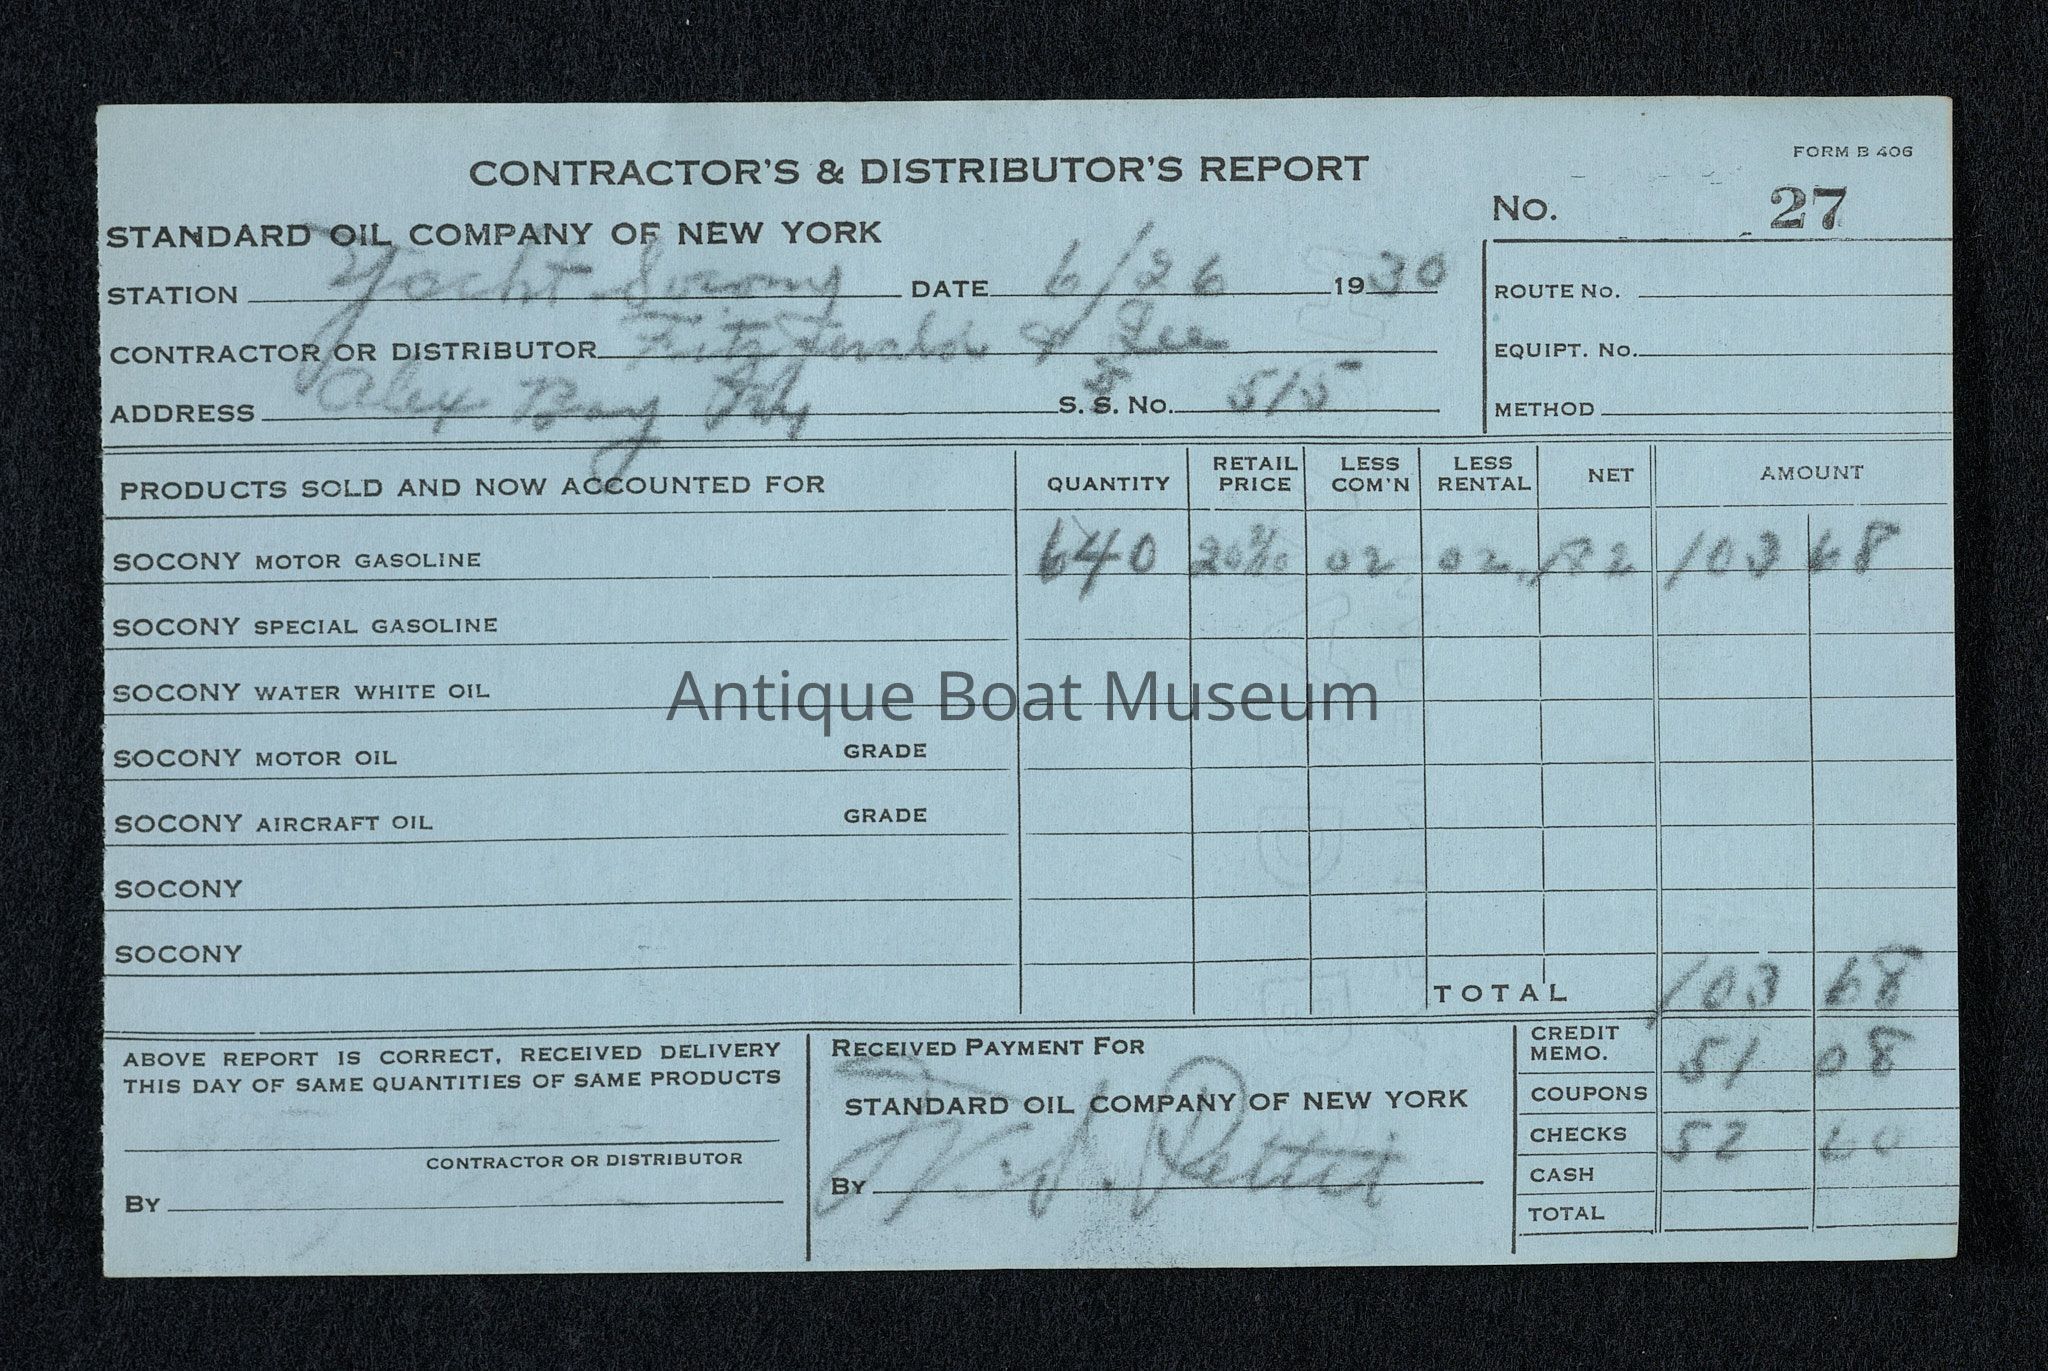 FORM B 406
CONTRACTOR'S & DISTRIBUTOR'S REPORT
No. 27
STANDARD OIL COMPANY OF NEW YORK
STATION Yacht Socony DATE 6/26 1930
ROUTE No.
CONTRACTOR OR DISTRIBUTOR Fitz Gerald & Lee
EQUIPT. No.
ADDRESS Alex Bay S. S. No. 515
METHOD
PRODUCTS SOLD AND NOW ACCOUNTED FOR QUANTITY RETAIL PRICE LESS COM'N LESS RENTAL NET AMOUNT
SOCONY MOTOR GASOLINE 640 20 2/10 02 02 .182 103 68
SOCONY SPECIAL GASOLINE
SOCONY WATER WHITE OIL
Antique Boat Museum
SOCONY MOTOR OIL GRADE
SOCONY AIRCRAFT OIL GRADE
SOCONY
SOCONY
TOTAL 103 68
ABOVE REPORT IS CORRECT, RECEIVED DELIVERY
THIS DAY OF SAME QUANTITIES OF SAME PRODUCTS
CONTRACTOR OR DISTRIBUTOR
BY
RECEIVED PAYMENT FOR
STANDARD OIL COMPANY OF NEW YORK
BY
CREDIT MEMO. 51 08
COUPONS
CHECKS 52 60
CASH
TOTAL